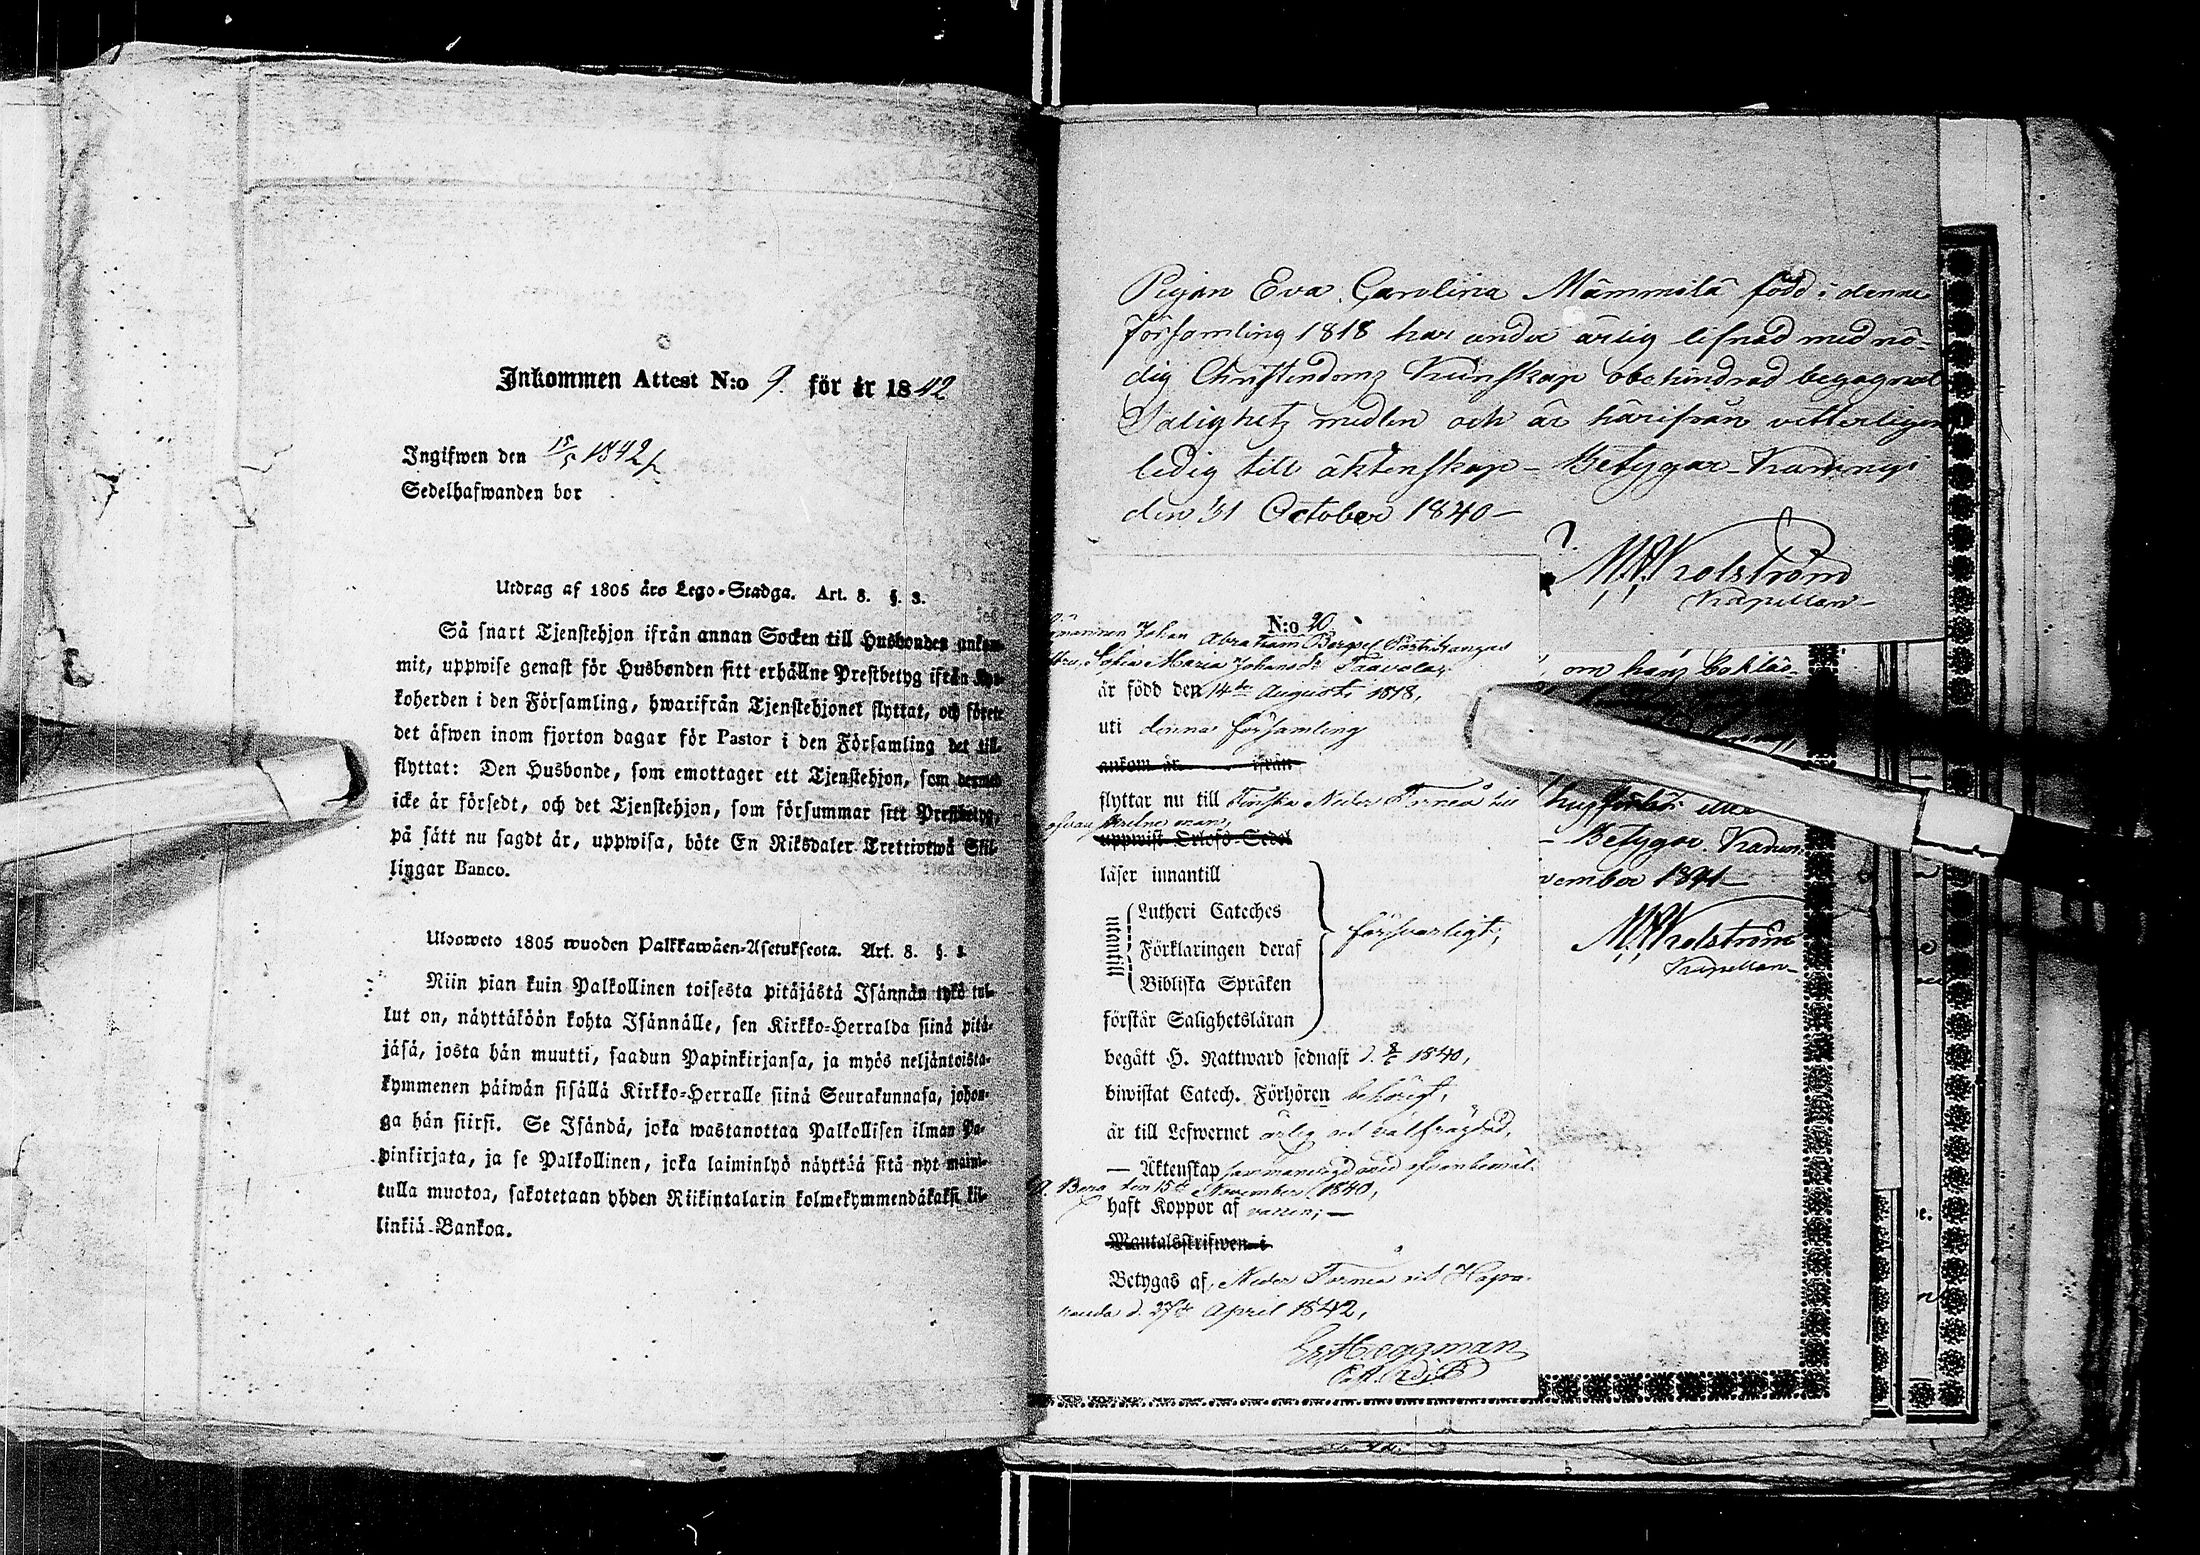 Inkommen Attest N:o 9. för år 1842
Ingifwen den 15/5 1842
Sedelhafwanden bor
Utdrag af 1805 års Lego-Stadga. Art. 8. §. 3.
Så snart Tjenstehjon ifrån annan Socken till Husbonden ankom-
mit, uppwise genast för Husbonden sitt erhållne Prestbetyg ifrån Kyr-
koherden i den Församling, hwarifrån Tjenstehjonet flyttat, och förete
det äfwen inom fjorton dagar för Pastor i den Församling det till-
flyttat: Den Husbonde, som emottager ett Tjenstehjon, som dermed
icke är försedt, och det Tjenstehjon, som försummar sitt Prestbetyg,
på sätt nu sagdt är, uppwisa, böte En Riksdaler Trettiotwå Skil-
lingar Banco.
Ulosweto 1805 wuoden Palkkawäen-Asetuksesta. Art. 8. §. 3.
Niin pian kuin Palkollinen toisesta pitäjästä Isännän tykö tul-
lut on, näyttäköön kohta Isännälle, sen Kirkko-Herralda siinä pitä-
jäsä, josta hän muutti, saadun Papinkirjansa, ja myös neljäntoista-
kymmenen päiwän sisällä Kirkko-Herralle siinä Seurakunnasa, johon-
ga hän siirsi. Se Isändä, joka wastanottaa Palkollisen ilman Pa-
pinkirjata, ja se Palkollinen, joka laiminlyö näyttää sitä nyt maini-
tulla muotoa, sakotetaan yhden Riikintalarin kolmekymmendäkaksi kil-
linkiä Bankoa.
Pigan Eva Carolina Mämmilä född i denne
församling 1818 har under ärlig lefnad med nö-
dig Christendoms Kunskap obehindrad begagnat
Salighets medlen och är härifrån vitterligen
ledig till äktenskap – Betygar Karungi
den 31 October 1840 –
Kapellan –
N:o 20.
Johan Abraham
Sofia Maria Johansdr Paavola,
är född den 14de Augusti 1818,
uti denna församling
ankom år ifrån
flyttar nu till Finska Neder Torneå till
man,
uppwist Orlofs-Sedel
läser innantill
utantill
Lutheri Cateches
Förklaringen deraf
Bibliska Språken
förswarligt,
förstår Salighetsläran
begått H. Nattward sednast d. 1840,
biwistat Catech. Förhören behörigt,
är till Lefwernet ärlig och välfrägdad,
— Äktenskap sammanvigd med
den 15de November 1840,
haft Koppor af vaccin; —
Mantalsskrifwen i
Betygas af, Neder Torneå vid Hapa-
randa d. 27de April 1842,
om hans
Betygar Karun
vember 1841 –
Kapellan –